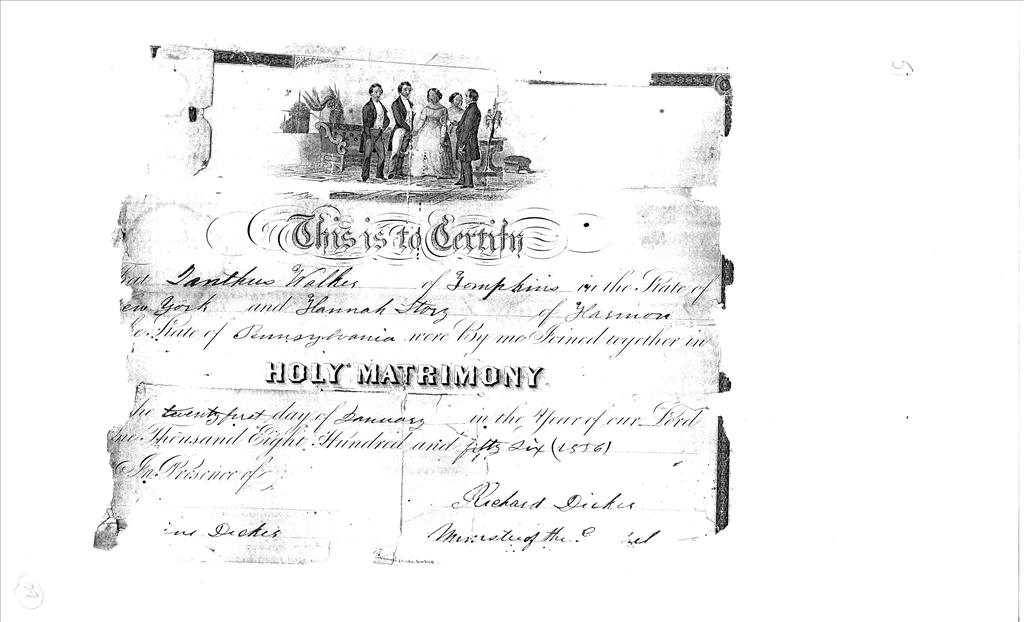 This is to Certify
Walker of Tompkins in the State of
York and Hannah Story of Harmon
State of Pennsylvania were By me Joined together in
HOLY MATRIMONY
the twenty first day of January in the Year of our Lord
Thousand Eight Hundred and fifty six (1856)
In Presence of
Richard Dicker
Dicker Minister of the